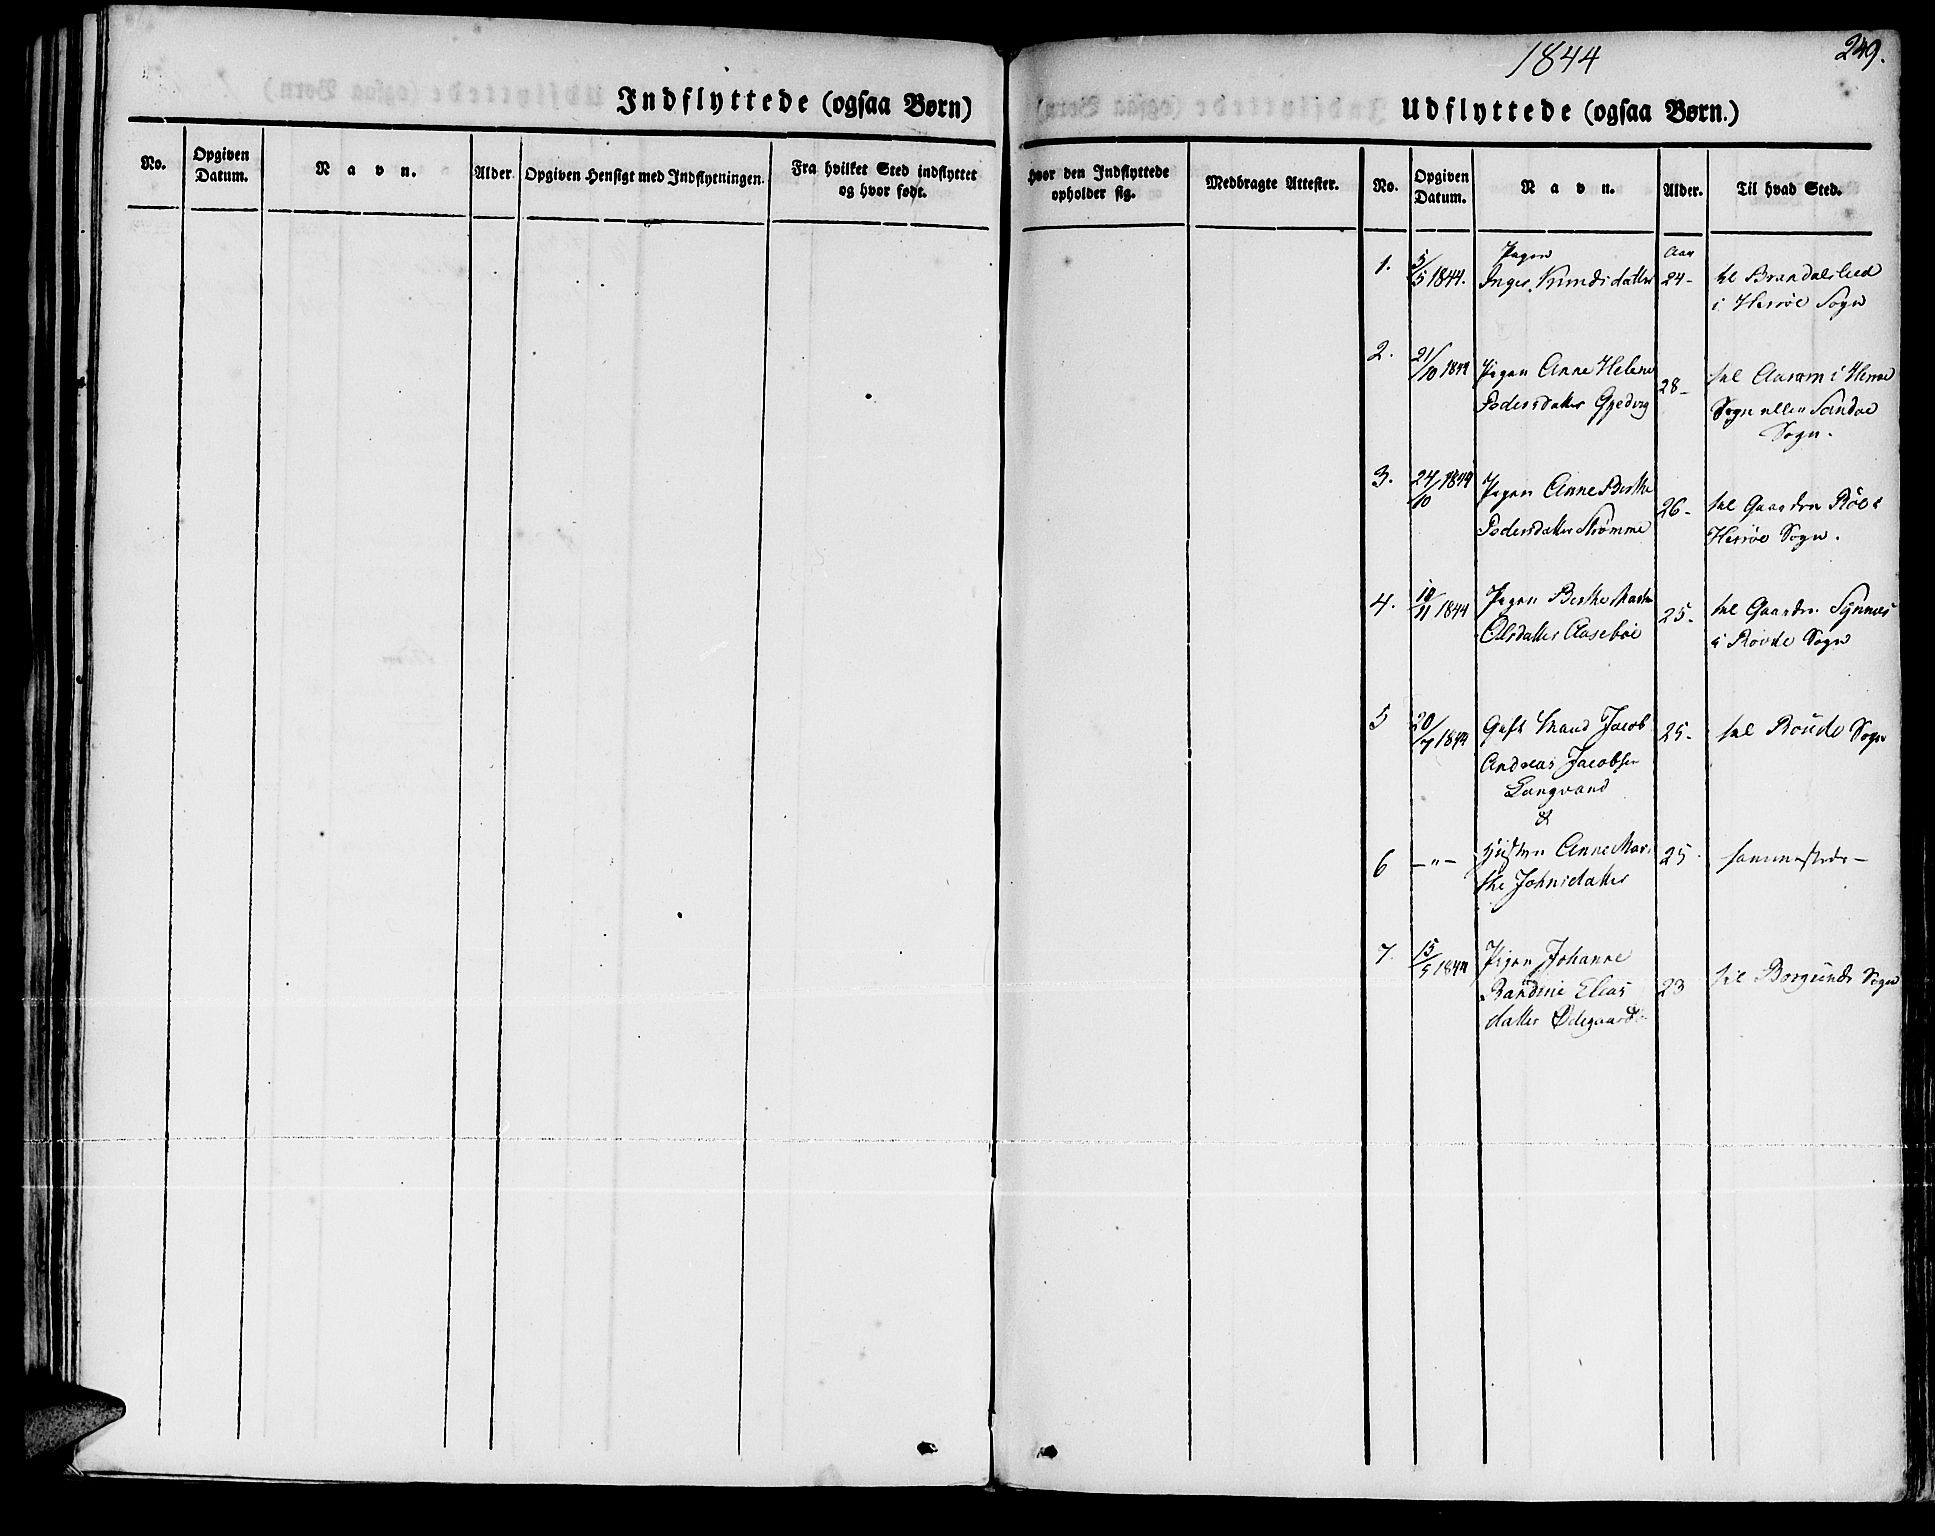 Indflyttede (ogsaa Børn)
No.
Opgiven
Datum.
Navn.
Alder
Opgiven Hensigt med Indflytningen.
Fra hvilket Sted indflyttet
og hvor født.
1844
249.
Udflyttede (ogsaa Børn.)
Hvor den Indflyttede
opholder sig.
Medbragte Attester.
No.
Opgiven
Datum.
Navn.
Alder.
Til hvad Sted.
1. 5/5 1844. Pigen
Inger Knudsdatter
Aar
24-
til Brandalslied
i Herröe Sogn
2. 21/10 1844 Pigen Anne Helene
Pedersdatter Gjedvig
28-
til i Herröe
Sogn eller Sandöe
Sogn.
3. 24/10 1844 Pigen Anne Berthe
Pedersdatter Strømme
26-
til Gaarden Röe i
Herröe Sogn.
4. 10/11 1844 Pigen Berthe Marthe
Olsdatter Aaseböe
25-
til Gaarden Synnes
i Rövde Sogn
5 20/7 1844 Gift Mand Jacob
Andreas Jacobsen
Langvand
&
25-
til Rövde Sogn
6 -"- Hustru Anne Mar-
the Johnsdatter
25
sammesteds-
7. 15/5 1844 Pigen Johanne
Randine Elias
datter Ødegaard
23
til Borgunds Sogn